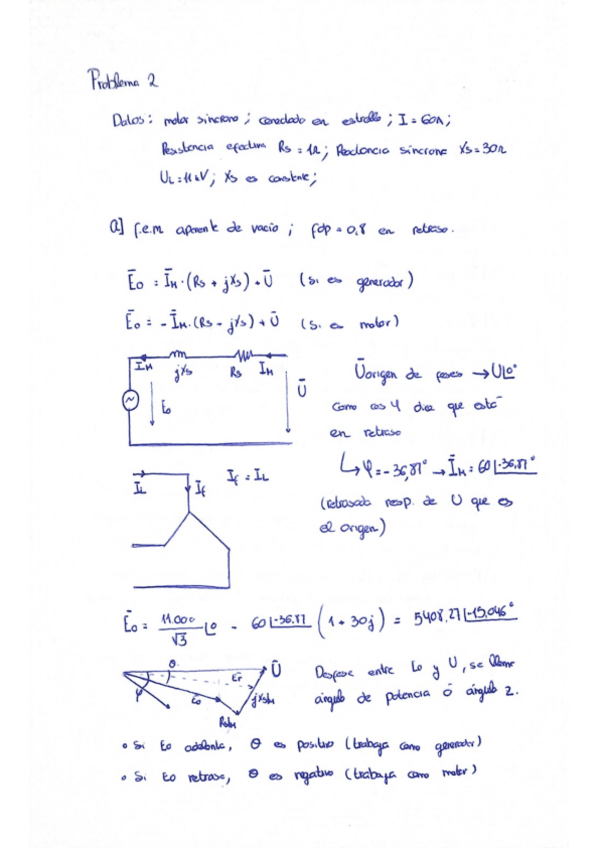 Problema 2
Datos: motor síncrono; conectado en estrella; I = 60A;
Resistencia efectiva Rs = 1Ω; Reactancia síncrona Xs = 30Ω
UL = 11kV; Xs es constante;
a] f.e.m aparente de vacío; fdp = 0,8 en retraso.
Ēo = Īm·(Rs + jXs) + Ū (si es generador)
Ēo = -Īm·(Rs - jXs) + Ū (si es motor)
Im jXs Rs Im
Eo Ū
Ū origen de fases → U∟0°
como cos φ dice que está
en retraso
↳ φ = -36,87° → Īm = 60∟-36,87°
(retrasada resp. de U que es
el origen)
IL If If = IL
Ēo = 11.000/√3 ∟0 - 60∟-36,87 (1 + 30j) = 5408,27∟-15,046°
θ Ū
Er
φ Eo jXsIm
RsIm
Desfase entre Eo y U, se llama
ángulo de potencia ó ángulo 2.
• Si Eo adelanta, θ es positivo (trabaja como generador)
• Si Eo retrasa, θ es negativo (trabaja como motor)